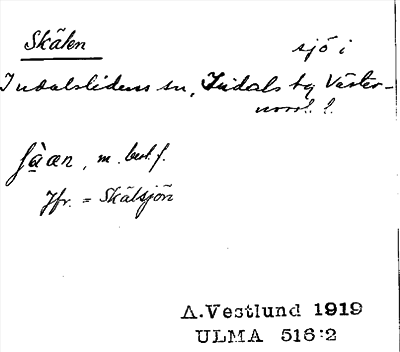 Skälen sjö i
Indalslidens sn, Indals tg Väster-
norrl. l.
ʃàan, m. best. f.
Jfr. = Skälsjön
A.Vestlund 1919
ULMA 516:2